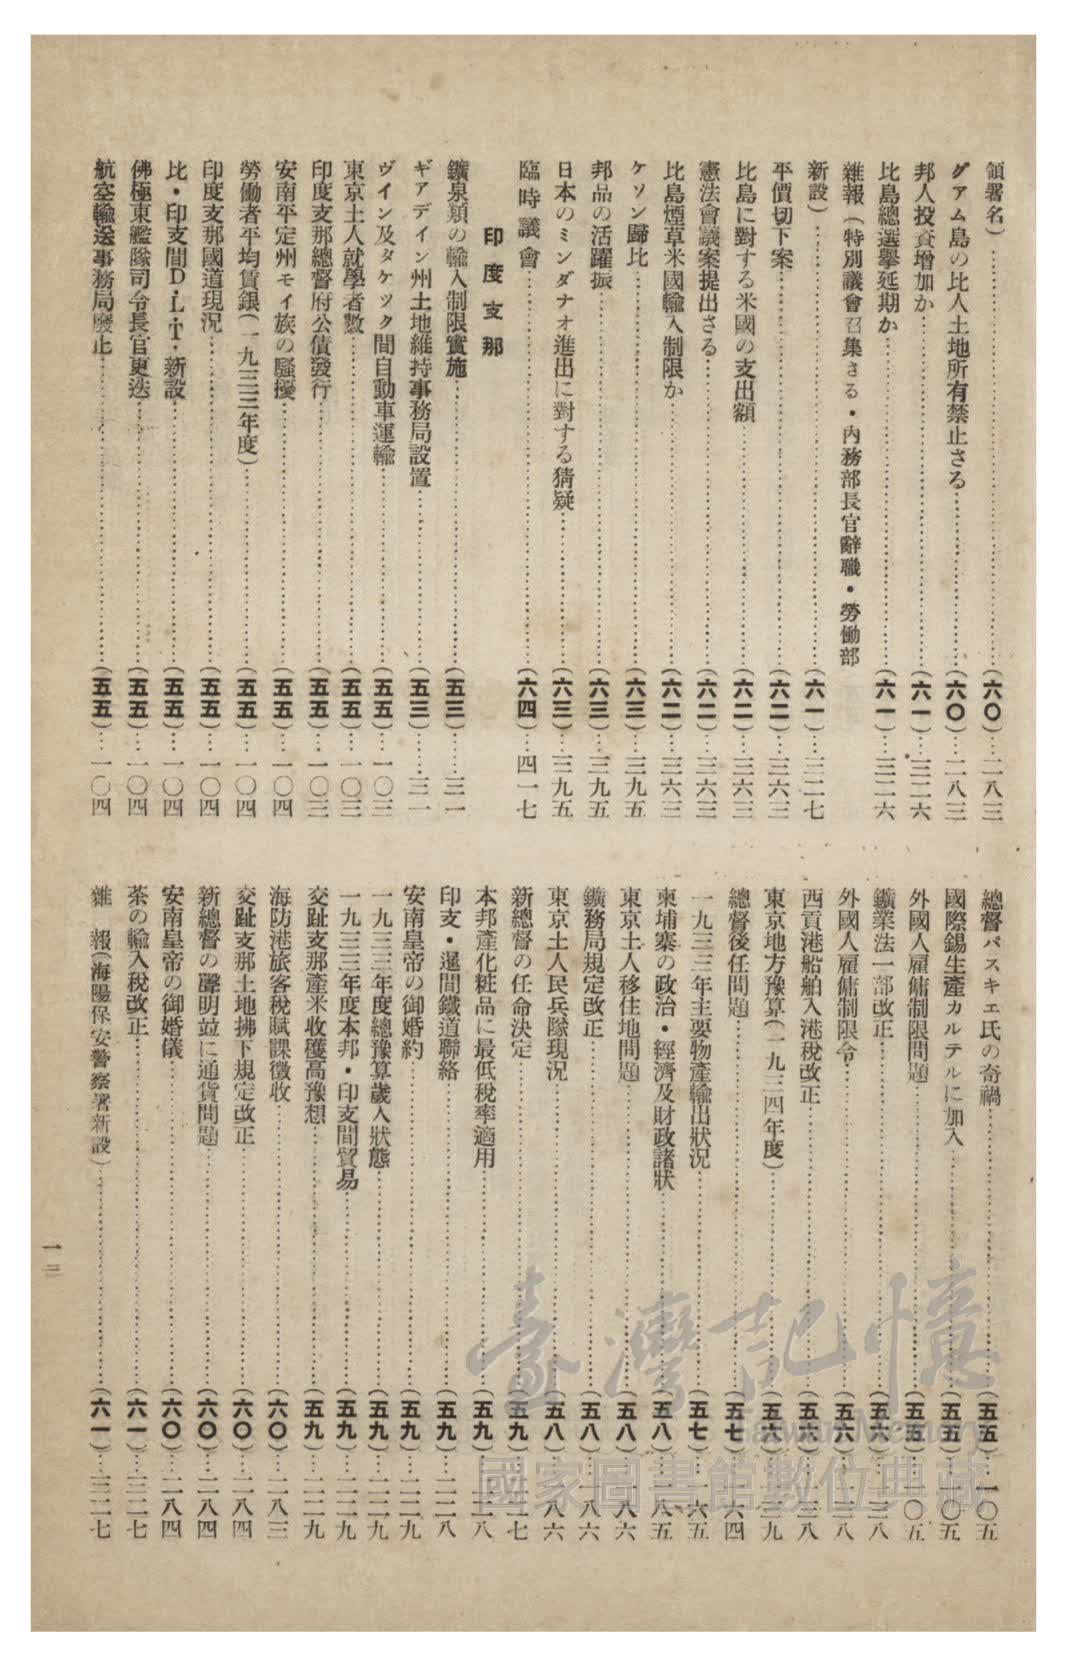 領署名)…(六〇)…二八三
グアム島の比人土地所有禁止さる…(六〇)…二八三
邦人投資增加か…(六一)…三二六
比島總選擧延期か…(六一)…三二六
雜報(特別議會召集さる・內務部長官辭職・勞働部
新設)…(六一)…三二七
平價切下案…(六二)…三六三
比島に對する米國の支出額…(六二)…三六三
憲法會議案提出さる…(六二)…三六三
比島煙草米國輸入制限か…(六二)…三六三
ケソン歸比…(六三)…三九五
邦品の活躍振…(六三)…三九五
日本のミンダナオ進出に對する猜疑…(六三)…三九五
臨時議會…(六四)…四一七
印度支那
鑛泉類の輸入制限實施…(五三)…三一
ギアデイン州土地維持事務局設置…(五三)…三一
ヴイン及タケツク間自動車運輸…(五五)…一〇三
東京土人就學者數…(五五)…一〇三
印度支那總督府公債發行…(五五)…一〇三
安南平定州モイ族の騷擾…(五五)…一〇四
勞働者平均賃銀(一九三三年度)…(五五)…一〇四
印度支那國道現況…(五五)…一〇四
比・印支間D・L・T・新設…(五五)…一〇四
佛極東艦隊司令長官更迭…(五五)…一〇四
航空輸送事務局廢止…(五五)…一〇四
總督パスキエ氏の奇禍…(五五)…一〇五
國際錫生產カルテルに加入…(五五)…一〇五
外國人雇傭制限問題…(五五)…一〇五
鑛業法一部改正…(五六)…三八
外國人雇傭制限令…(五六)…三八
西貢港船舶入港稅改正…(五六)…三八
東京地方豫算(一九三四年度)…(五六)…三九
總督後任問題…(五七)…六四
一九三三年主要物產輸出狀況…(五七)…六五
柬埔寨の政治・經濟及財政諸狀…(五八)…八五
東京土人移住地問題…(五八)…八六
鑛務局規定改正…(五八)…八六
東京土人民兵隊現況…(五八)…八六
新總督の任命決定…(五九)…二二七
本邦產化粧品に最低稅率適用…(五九)…二二八
印支・暹間鐵道聯絡…(五九)…二二八
安南皇帝の御婚約…(五九)…二二九
一九三三年度總豫算歲入狀態…(五九)…二二九
一九三三年度本邦・印支間貿易…(五九)…二二九
交趾支那產米收穫高豫想…(五九)…二二九
海防港旅客稅賦課徵收…(六〇)…二八三
交趾支那土地拂下規定改正…(六〇)…二八四
新總督の聲明竝に通貨問題…(六〇)…二八四
安南皇帝の御婚儀…(六〇)…二八四
茶の輸入稅改正…(六一)…三二七
雜　報(海陽保安警察署新設)…(六一)…三二七
臺灣記憶
Taiwan Memory
國家圖書館數位典藏